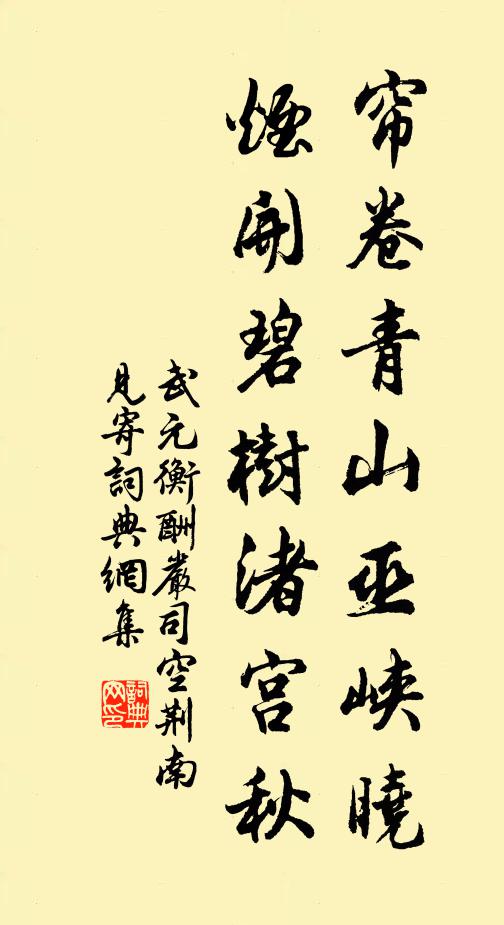 帘卷青山巫峡曉
煙開碧樹渚宫秋
武元衡酬嚴司空荆南
見寄詞典網集
詞典
网印